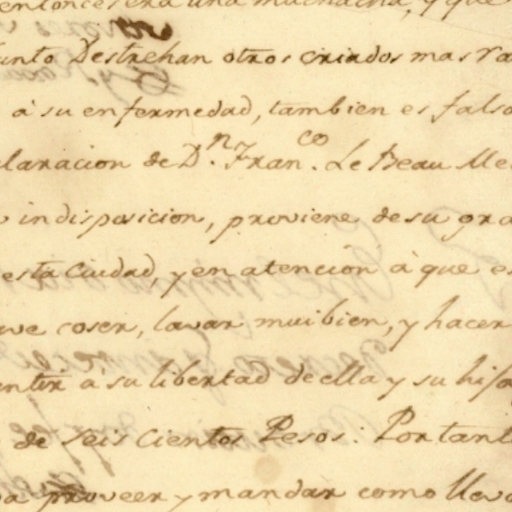 entonces era una muchacha, y que
unto Destrehan otros criados mas va
à su enfermedad, tambien es falso
claracion de D.n Fran.co Le Beau Me
indisposicion, proviene de su gra
esta Ciudad, y en atencion à que es
coser, lavar mui bien, y hacer
entir a su libertad de ella y su hija
de seis cientos Pesos: Portant
proveer y mandar como lleva